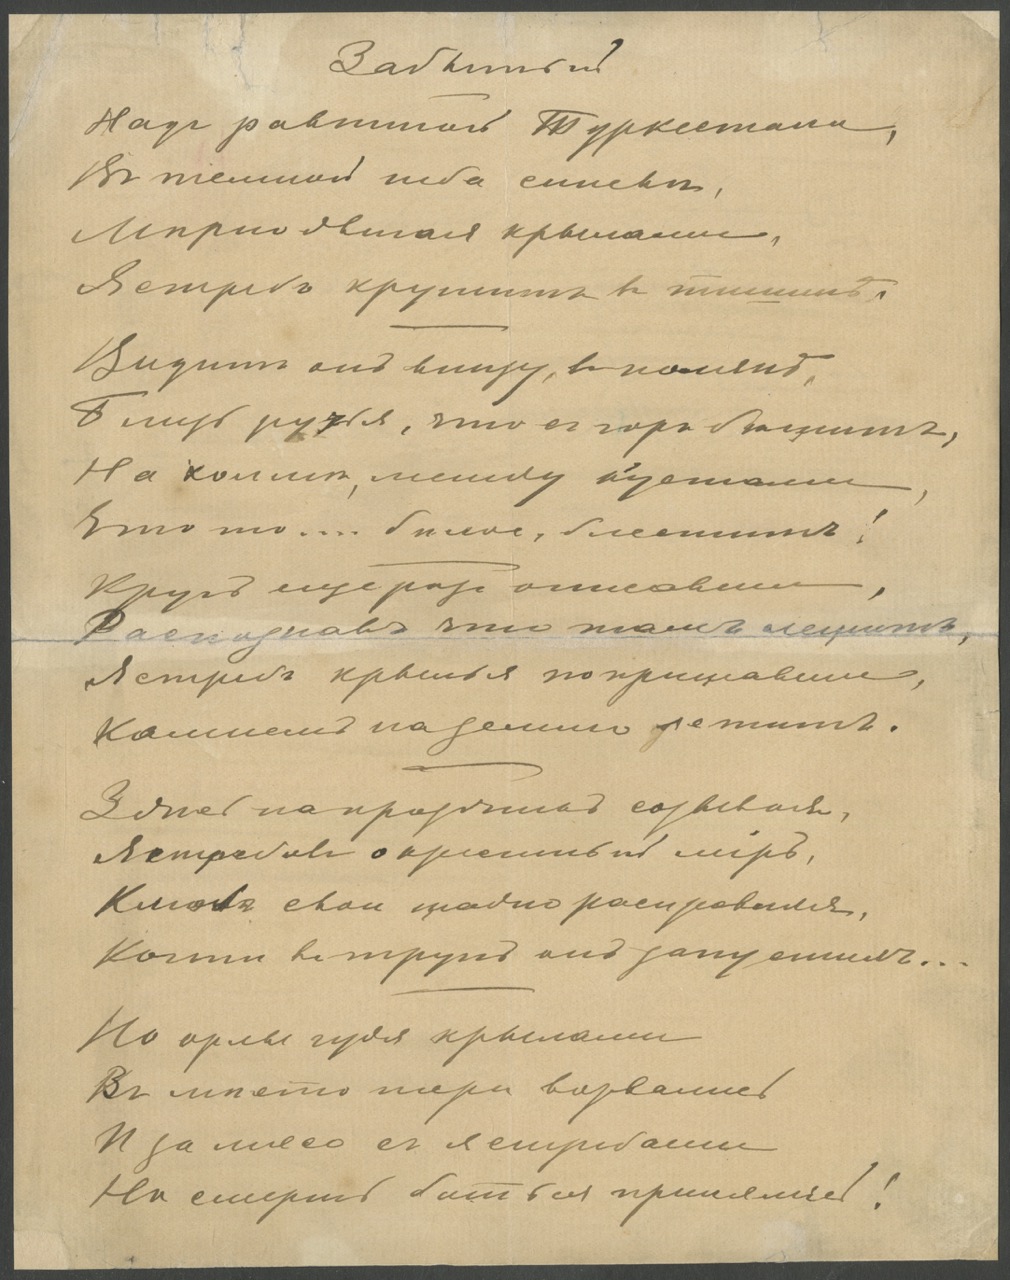 Забытый
Надъ равниной Туркестана,
Въ темной неба синевѣ,
крылами,
Ястребъ кружитъ въ тишинѣ.
Видитъ онъ внизу, въ полянѣ,
Близь ружья, что съ горъ бѣжитъ,
На холмѣ, между кустами,
Что то.... белое, блеститъ!
Кругъ еще разъ описавши,
Распознавъ что тамъ лежитъ,
Ястребъ крылья поприжавши,
Камнемъ на землю летитъ.
на созывая,
Ястребовъ окрестный міръ,
Клювъ свой жадно расправляя,
Когти въ трупъ онъ запустилъ...
Но орлы гудя крылами
Въ мѣсто пера ворвались
И за мясо съ ястребами
На смерть биться принялись!